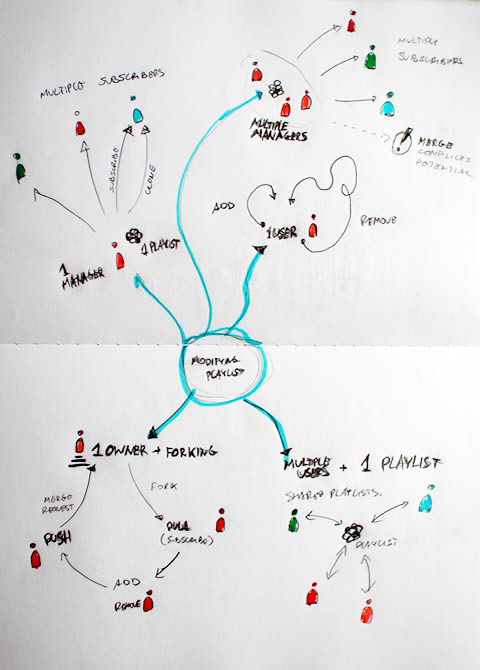 MULTIPLE SUBSCRIBERS
MULTIPLE
SUBSCRIBERS
MULTIPLE
MANAGERS
MERGE
CONFLICTS
POTENTIAL
SUBSCRIBE
CLONE
1
MANAGER
1 PLAYLIST
ADD
1 USER
REMOVE
MODIFYING
PLAYLIST
1 OWNER → FORKING
MERGE
REQUEST
FORK
PUSH
PULL
(SUBSCRIBE)
ADD
REMOVE
MULTIPLE
USERS + 1 PLAYLIST
SHARED PLAYLISTS.
PLAYLIST